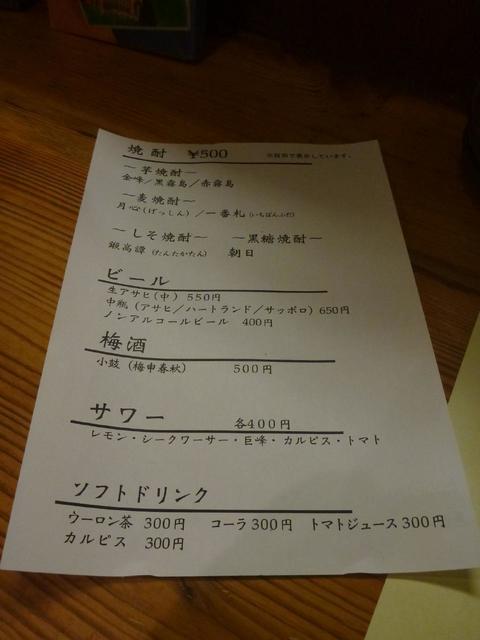 焼酎 ¥500 ※税別で表示しています。
－芋焼酎－
金峰／黒霧島／赤霧島
－麦焼酎－
月心(げっしん)／一番札(いちばんふだ)
－しそ焼酎－ －黒糖焼酎－
鍛高譚(たんたかたん) 朝日
ビール
生アサヒ(中) 550円
中瓶(アサヒ／ハートランド／サッポロ)650円
ノンアルコールビール 400円
梅酒
小鼓(梅申春秋) 500円
サワー 各400円
レモン・シークワーサー・巨峰・カルピス・トマト
ソフトドリンク
ウーロン茶 300円 コーラ300円 トマトジュース300円
カルピス 300円